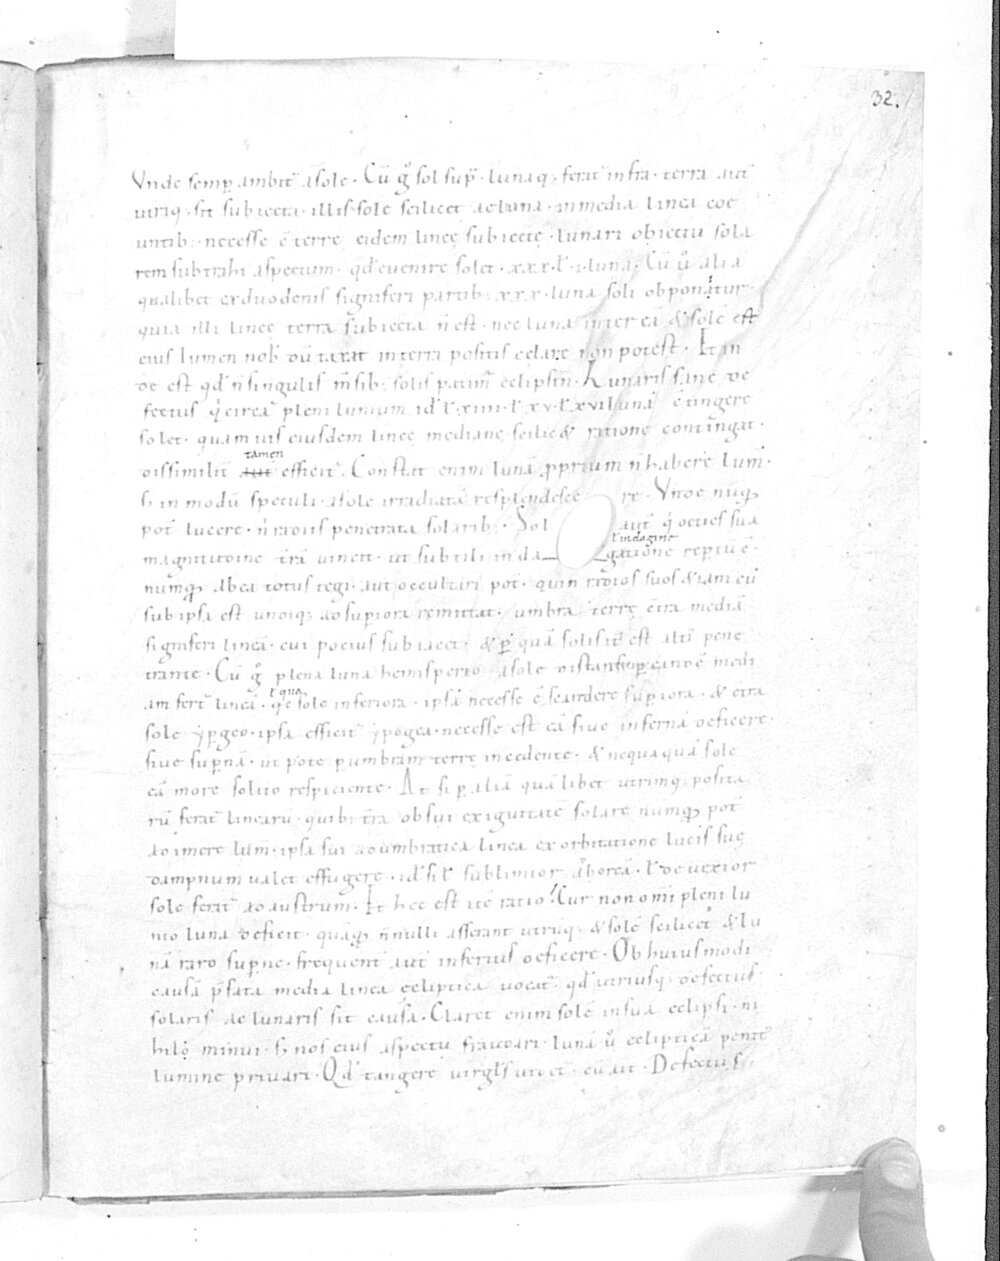 32.
Vnde semp ambit᷒ a sole · Cū g̊ sol sup̄ · lunaq; ferat᷒ infra · terra aut᷒
utriq; sit subiecta · illis sole scilicet ac luna · in media linea coe
untib; · necesse ē terrę eidem lineę subiectę · lunari obiectu sola
rem subtrahi aspectum · qđ euenire solet · xxx · ł · i · luna · Cū ů alia
qualibet ex duodenis signiferi partib; xxx · luna soli obponatur ·
quia illi lineę terra subiecta ñ est · nec luna inter eā & solē est
eius lumen nob̄ dūtaxat in terra positis celare non potest · Et in
de est qđ ñ singulis m̄sib; solis patim᷒ eclipsin · Lunaris sane de
fectus q̇ circa pleni lunium id ē · xiiii · ł · xv · ł xvi luna᷒ ctingere
solet · quam uis eiusdem lineę medianę scilic& ratione contingat ·
dissimilit᷒ tamen efficit᷒ · Constat enim lunā proprium ñ habere lum̄ ·
s; in modū speculi · a sole irradiatā resplendesce re · Vnde nuq̄
pot̄ lucere · ñ radiis penetrata solarib; · Sol aut᷒ q̇ octies sua
magnitudine t̄rā uincit · ut subtili inda gatione ł indagine reptū ē ·
numq̄ ab ea totus tegi · aut occultiri pot̄ · quin radios suos &iam cū
sub ipsa est undiq; ad supiora remittat · umbrā terrę c̄tra mediā
signiferi lineā · cui pocius subiacet · & p quā solis it̄ est alti᷒ pene
trante · Cū g̊ plena luna hemisperio a sole distans p eande medi
am fert᷒ lineā · quę ł qua sole inferiora · ipsā necesse ē scandere supiora · & c̄tra
sole ypgeo · ipsa efficit᷒ ypogea · necesse est eā siue infernā deficere ·
siue supnā · ut pote p umbram terrę incedente · & nequaquā sole
eā more solito respiciente · At si p aliā quālibet utrimq; posita
rū ferat᷒ linearū · quib; t̄ra ob sui exiguitatē solare numq̄ pot̄
adimere lum̄ · ipsa sui ad umbratica linea exorbitatione lucis suę
dampnum ualet effugere · id s; ł sublimior ad boreā · ł deuexior
sole ferat᷒ ad austrum · Et hęc est itē ratio · Cur non omi pleni lu
nio luna deficit · quaq̄ ñnulli asserant utruq; · & solē scilicet · & lu
nā raro supne · frequent᷒ aut᷒ inferius deficere · Ob huiusmodi
causā p̄fata media linea ecliptica uocat᷒ · qđ utriusq; defectus
solaris ac lunaris sit causa · Claret enim solē in sua eclipsi · ni
hilo minui · s; nos eius aspectu fraudari · lunā ů eclipticā penit᷒
lumine priuari · Qđ tangere uirgł's uidet᷒ · cū ait · Defectus